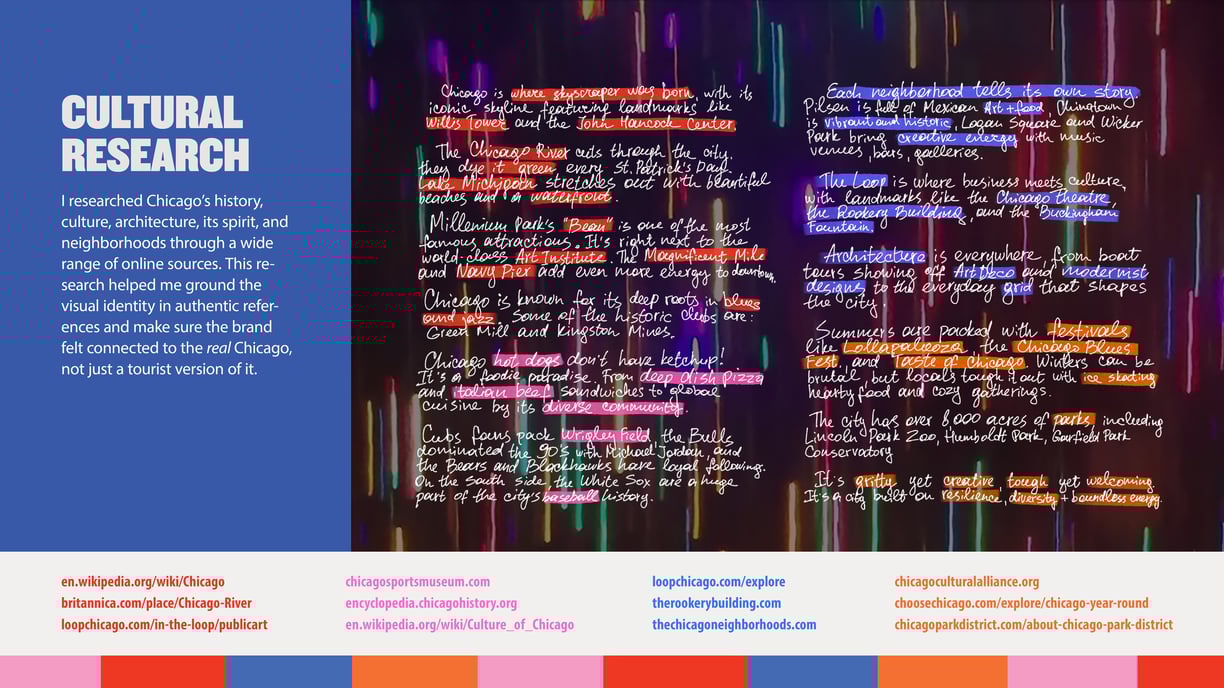 CULTURAL
RESEARCH
I researched Chicago's history,
culture, architecture, its spirit, and
neighborhoods through a wide
range of online sources. This re-
search helped me ground the
visual identity in authentic refer-
ences and make sure the brand
felt connected to the real Chicago,
not just a tourist version of it.
Chicago is where skyscraper was born, with its
iconic skyline featuring landmarks like
Willis Tower and the John Hancock Center.
The Chicago River cuts through the city.
they dye it green every St. Patrick's Day.
Lake Michigan stretches out with beautiful
beaches and a waterfront.
Millenium Park's "Bean" is one of the most
famous attractions. It's right next to the
world-class Art Institute. The Magnificent Mile
and Navy Pier add even more energy to downtown.
Chicago is known for its deep roots in blues
and jazz. Some of the historic clubs are:
Green Mill and Kingston Mines.
Chicago hot dogs don't have ketchup!
It's a foodie paradise. From deep dish pizza
and italian beef sandwiches to global
cuisine by its diverse community.
Cubs fans pack Wrigley Field, the Bulls
dominated the 90's with Michael Jordan, and
the Bears and Blackhawks have loyal following.
On the South side, the White Sox are a huge
part of the city's baseball history.
Each neighborhood tells its own story.
Pilsen is full of Mexican Art + food, Chinatown
is vibrant and historic, Logan Square and Wicker
Park bring creative energy with music
venues, bars, galleries.
The Loop is where business meets culture,
with landmarks like the Chicago Theatre,
the Rookery Building, and the Buckingham
Fountain.
Architecture is everywhere, from boat
tours showing off Art Deco and modernist
designs to the everyday grid that shapes
the city.
Summers are packed with festivals
like Lollapalooza, the Chicago Blues
Fest, and Taste of Chicago. Winters can be
brutal, but locals tough it out with ice skating
hearty food and cozy gatherings.
The city has over 8,000 acres of parks including
Lincoln Park Zoo, Humboldt Park, Garfield Park
Conservatory
It's gritty yet creative, tough yet welcoming.
It's a city built on resilience, diversity + boundless energy.
en.wikipedia.org/wiki/Chicago
britannica.com/place/Chicago-River
loopchicago.com/in-the-loop/publicart
chicagosportsmuseum.com
encyclopedia.chicagohistory.org
en.wikipedia.org/wiki/Culture_of_Chicago
loopchicago.com/explore
therookerybuilding.com
thechicagoneighborhoods.com
chicagoculturalalliance.org
choosechicago.com/explore/chicago-year-round
chicagoparkdistrict.com/about-chicago-park-district